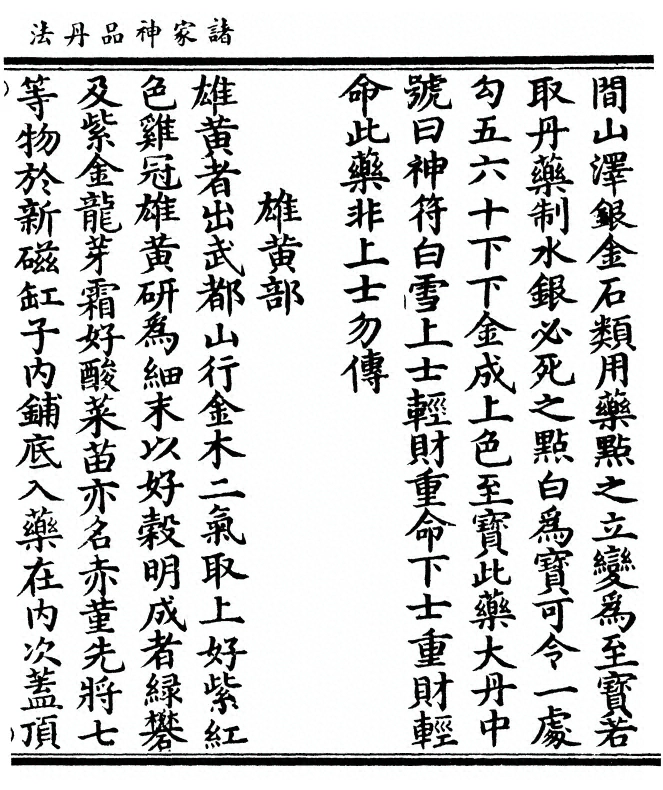 諸家神品丹法
間山澤銀金石類用藥點之立變爲至寳若
取丹藥制水銀必死之點白爲寳可令一處
勾五六十下下金成上色至寳此藥大丹中
號曰神符白雪上士輕財重命下士重財輕
命此藥非上士勿傳
雄黄部
雄黄者出武都山行金木二氣取上好紫紅
色雞冠雄黄研爲細末以好穀明成者緑礬
及紫金龍芽霜好酸菜苗亦名赤蓳先將七
等物於新磁缸子内鋪底入藥在内次蓋頂